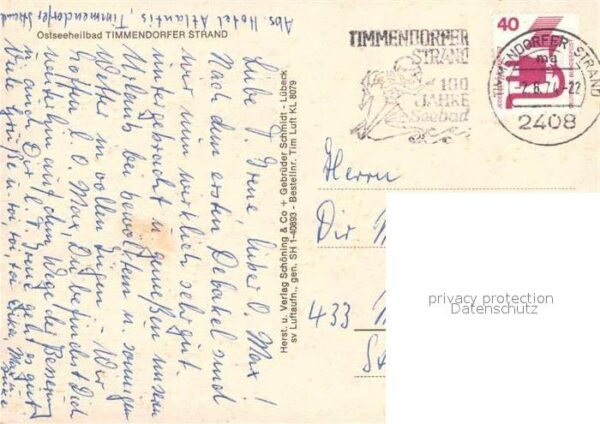 Abs. Hotel Atlantis, Timmendorfer Strand
Ostseeheilbad TIMMENDORFER STRAND
Liebe J. Irene, lieber O. Max!
Nach dem ersten Debakel sind
wir nun wirklich sehr gut
untergebracht u. genießen unseren
Urlaub bei bewölktem u. sonnigen
Wetter in vollen Zügen. Wir
hoffen l. O. Max, Du befindest Dich
weiterhin auf dem Wege der Besserung
u. auch Dir l. J. Irene geht es gut.
Viele Grüße u. toi, toi, toi
Herst. u. Verlag Schöning & Co + Gebrüder Schmidt - Lübeck
sv Luftaufn., gen. SH 1-40893 - Bestellnr. Tim Luft KL 8079
TIMMENDORFER
STRAND
100
JAHRE
Seebad
40
TIMMENDORFER STRAND
ma
2408
Herrn
Dir
433
privacy protection
Datenschutz